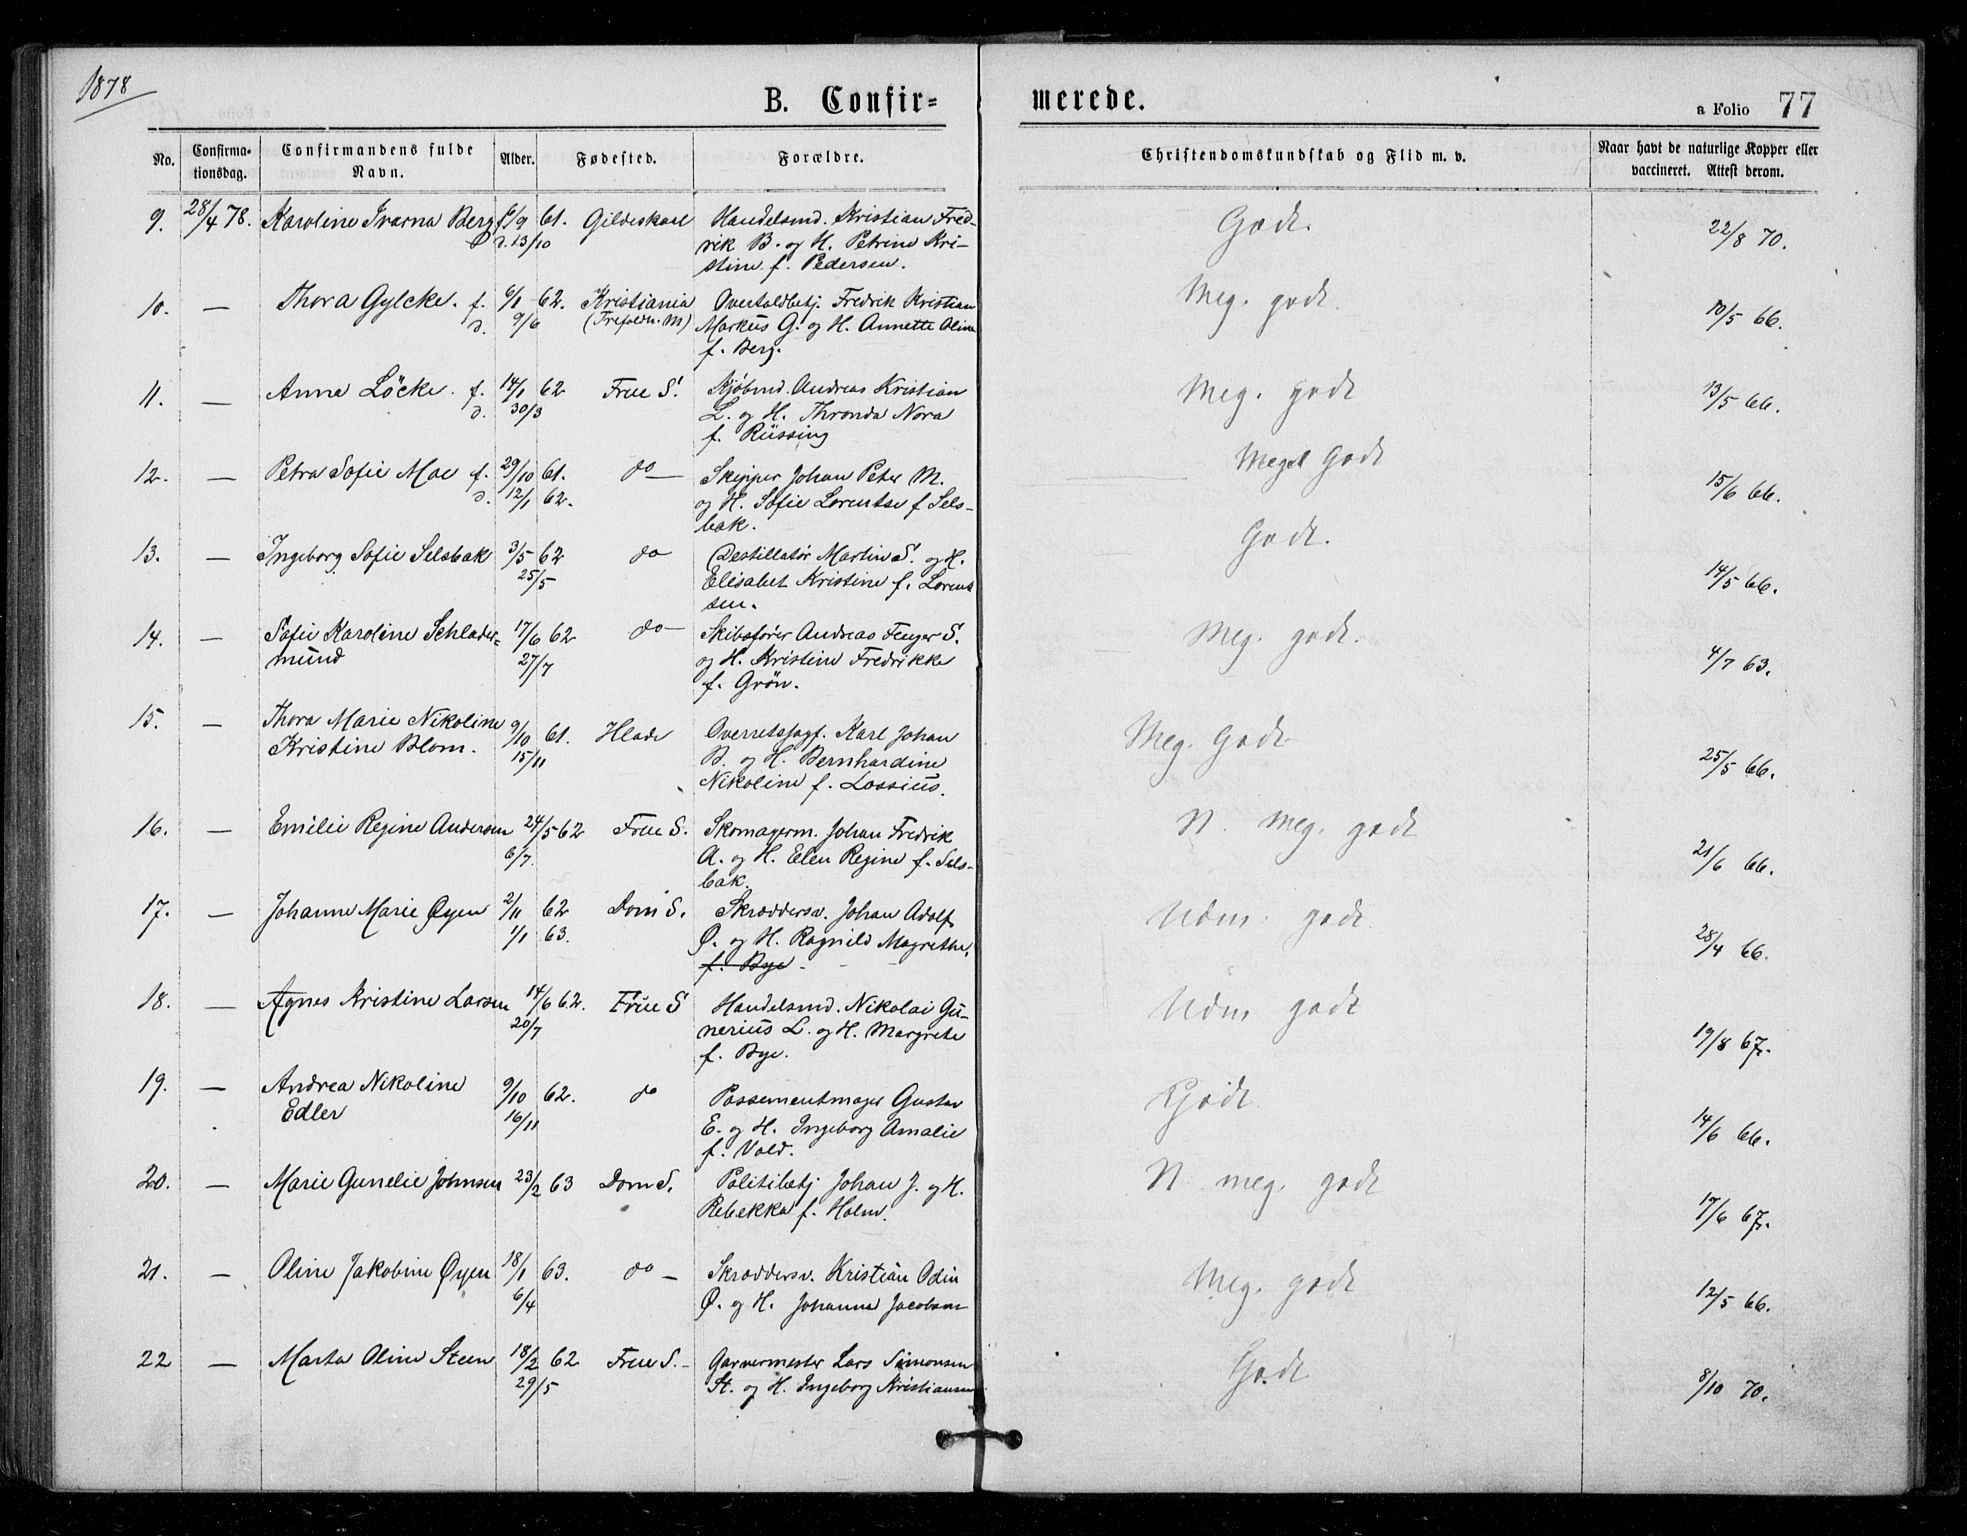 1878
B. Confirmerede.
a Folio 77
No. Confirmationsdag. Confirmandens fulde Navn. Alder. Fødested. Forældre. Christendomskundskab og Flid m. v. Naar havt de naturlige Kopper eller vaccineret. Attest derom.
9. 28/4 78. Karoline Ivarna Berg f. 6/9 61. Gildeskaal Handelsmd. Kristian Fred- Godt. 22/8 70.
d. 13/10 rik B. og H. Petrine Kri-
stine f. Pedersen.
10. — Thora Gylche. f. 6/1 62. Kristiania Overtoldbetj. Fredrik Kristian Meg. godt 10/5 66.
d. 9/6 (Trefoldn. M) Markus G. og H. Annette Oline
f. Berg.
11. — Anna Löcke. f. 14/1 62 Frue S. Kjøbmd. Andreas Kristian Meg. godt 13/5 66.
d. 30/3 L. og H. Thronda Nora
f. Rüssing
12. — Petra Sofie Moe f. 29/10 61. do — Skipper Johan Peter M. Meget Godt 15/6 66.
d. 12/1 62. og H. Sofie Lorentse f Sels-
bak.
13. — Ingeborg Sofie Selsbak 3/5 62 do Destillatør Martin S. og H. Godt. 14/5 66.
25/5 Elisabet Kristine f. Lorent
sen.
14. — Sofie Karoline Schlader- 17/6 62 do — Skibsfører Andreas Fenger S. Meg. godt. 4/7 63.
mund 27/7 og H. Kristine Fredrikke
f. Grön.
15. — Thora Marie Nikoline 9/10 61. Hlade Overretssagf. Karl Johan Meg. Godt 25/5 66.
Kristine Blom. 15/11 B. og H. Bernhardine
Nikoline f. Lossius.
16. — Emilie Regine Andersen 24/5 62 Frue S. Skomagerm. Johan Fredrik N. meg. godt 21/6 66.
6/7. A. og H. Elen Regine f. Sels-
bak.
17. — Johanne Marie Øyen 2/11 62 Dom S. Skræddersv. Johan Adolf Udm. godt 28/4 66.
1/1 63. Ø. og H. Ragnild Magrethe.
f. Bye
18. — Agnes Kristine Larsen 14/6 62. Frue S Handelsmd. Nikolai Gu- Udm. godt 19/8 67.
20/7 nerius L. og H. Margrete
f. Bye.
19. — Andrea Nikoline 9/10 62. do Possementmager Gustav Godt 14/6 66.
Edler 16/11 E. og H. Ingeborg Amalie
f. Vold.
20. — Marie Gunelie Johnsen 23/2 63 Dom S. Politibetj Johan J. og H. N meg. godt 17/6 67.
Rebekka f. Holm.
21. — Oline Jakobine Øyen 18/1 63. do — Skræddersv. Kristian Odin Meg. godt 12/5 66.
6/4 Ø. og H. Johanna Jacobsen
22 — Marta Oline Steen 18/2 62 Frue S. Garvermester Lars Simonsen Godt 8/10 70.
29/5 St. og H. Ingeborg Kristiansen